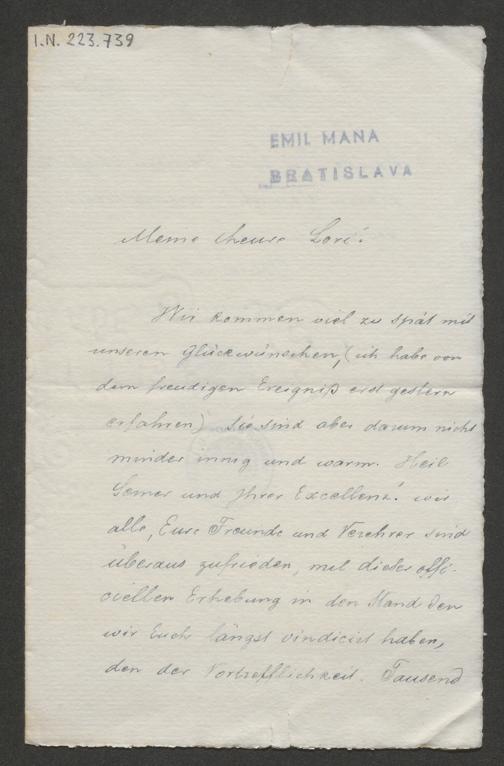 I.N. 223.739
EMIL MANA
BRATISLAVA
Meine theure Lori!
Wir kommen viel zu spät mit
unseren Glückwünschen, (ich habe von
dem freudigen Ereigniß erst gestern
erfahren) sie sind aber darum nicht
minder innig und warm. Heil
Seiner und Ihrer Excellenz! wir
alle, Eure Freunde und Verehrer sind
überaus zufrieden, mit dieser offi-
ciellen Erhebung in den Stand den
wir Euch längst vindicirt haben,
den der Vortrefflichkeit. Tausend